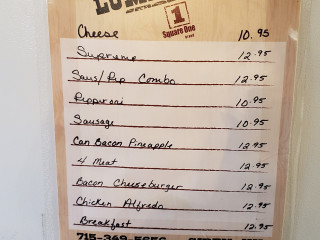 1
Square One
Cheese 10.95
Supreme 12.95
Saus/Pep Combo 12.95
Pepperoni 10.95
Sausage 10.95
Can Bacon Pineapple 12.95
4 Meat 12.95
Bacon Cheeseburger 12.95
Chicken Alfredo 12.95
Breakfast 12.95